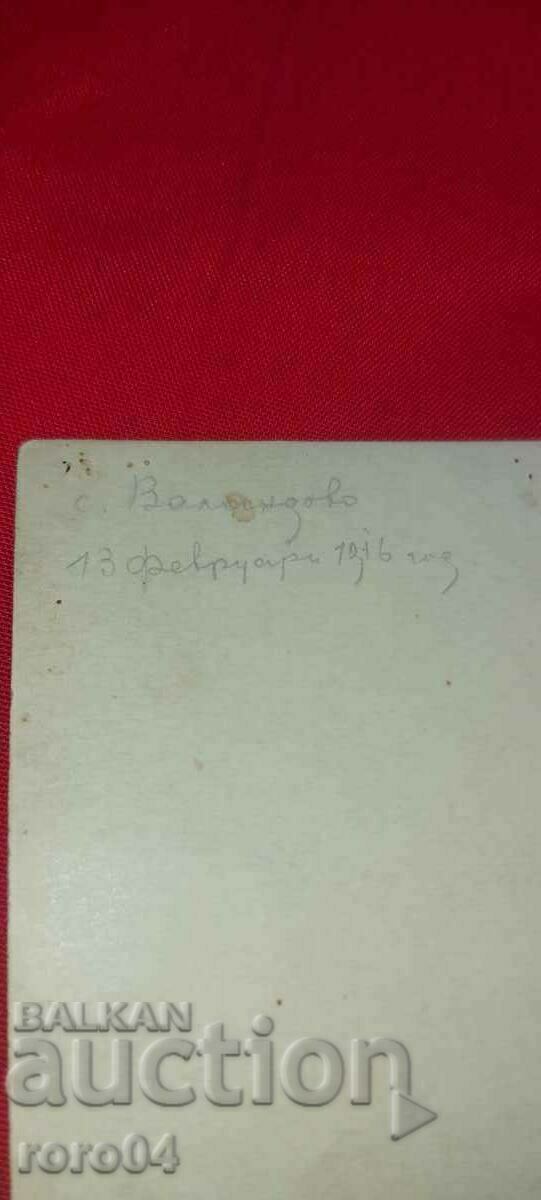 с. Валандово
13 февруари 1916 год
BALKAN
auction
roro04